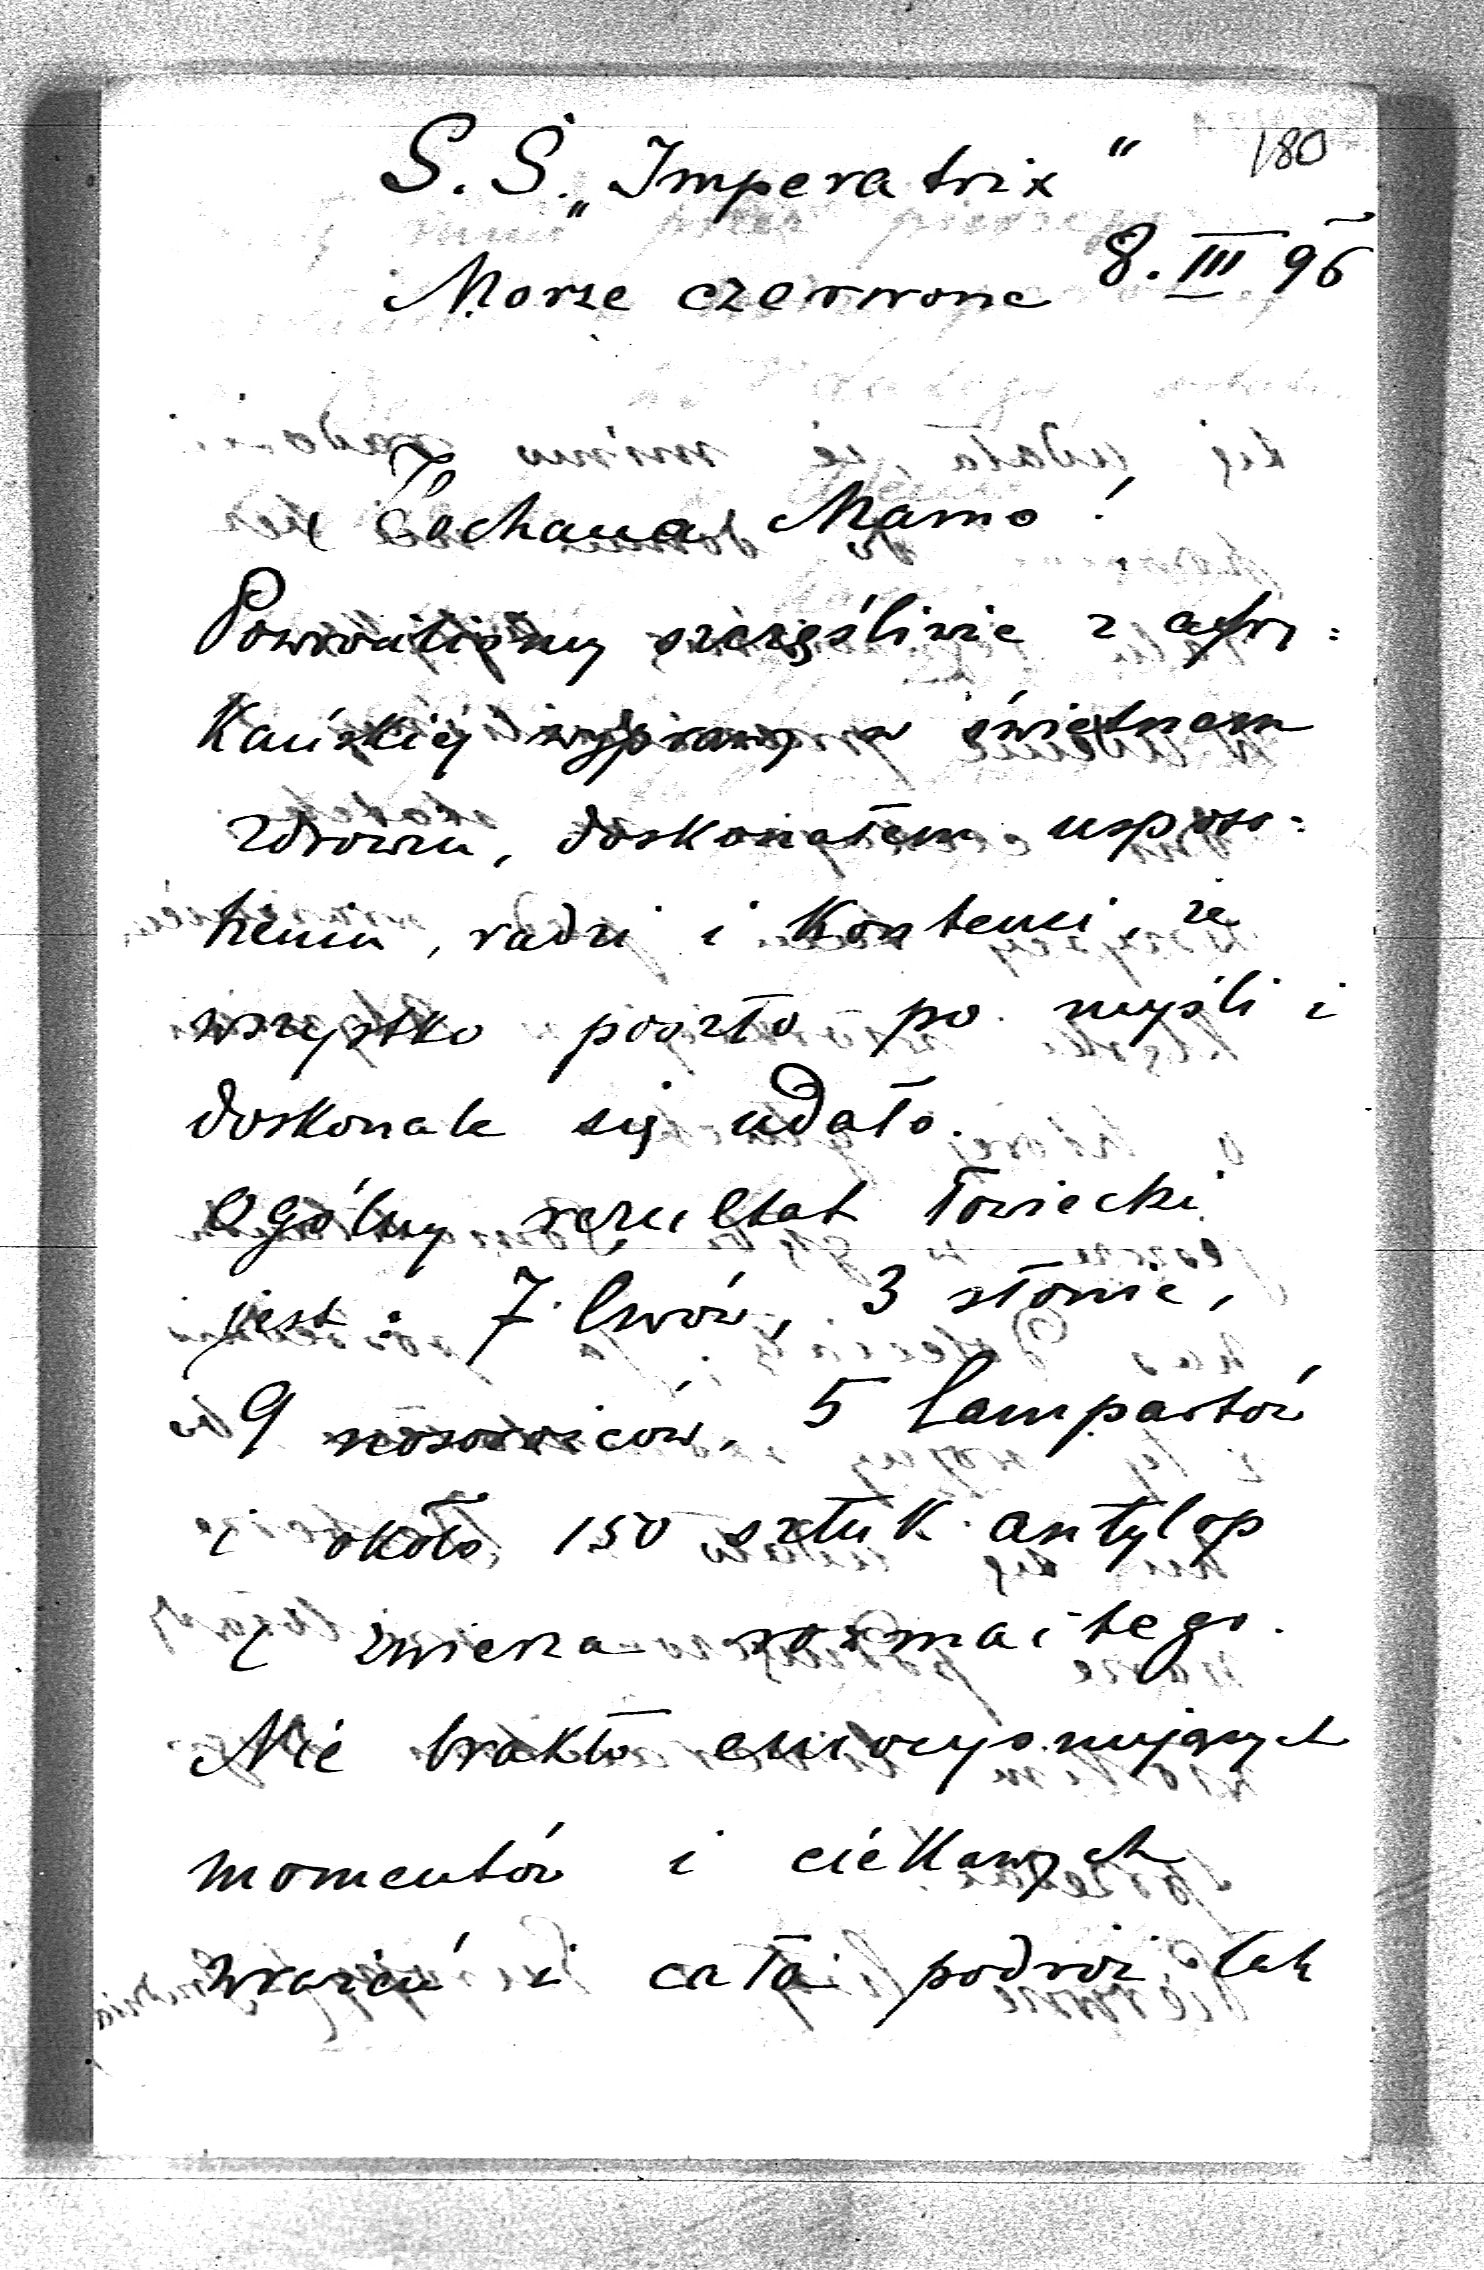 180
S. S. „Imperatrix"
Morze czerwone 8. III 96
Kochana Mamo!
Powróciliśmy szczęśliwie z afry=
kańskiej wyprawy w świetnem
zdrowiu, doskonałem usposo=
bieniu, radzi i kontenci, że
wszystko poszło po myśli i
doskonale się udało.
Ogólny rezultat łowiecki
jest: 7 lwów, 3 słonie,
9 nosorożców, 5 lampartów
i około 150 sztuk antylop
i zwierza rozmaitego.
Nie brakło emocyonujących
momentów i ciekawych
wrażeń i cała podróż tak